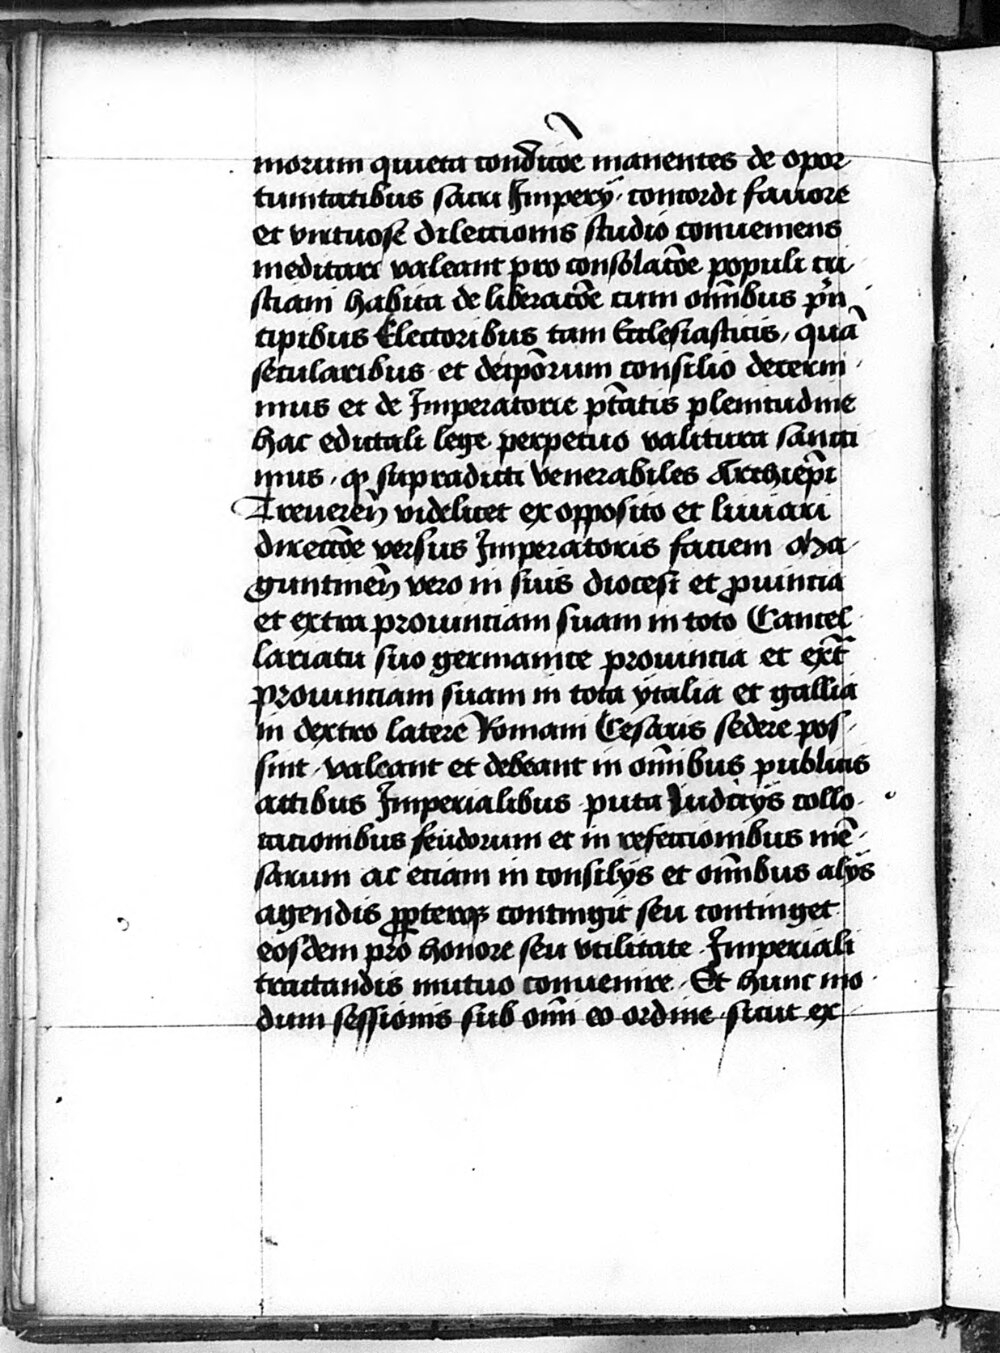 morum quieta condic̄oe manentes de opor
tunitatibus sacri Imperÿ · concordi fauore
et virtuose dileccionis studio conueniens
meditari valeant pro consolac̄oe populi cri
stiani habita deliberac̄oe cum om̄ibus pri̅n
cipibus Electoribus tam Ecclesiasticis, quā
secularibus · et deip̄orum consilio decerni
mus et de Imperatorie pt̄atis plenitudine
hac edictali lege perpetuo valitura sancci
mus · qp supradicti venerabiles Archiep̄i
Treuereñ videlicet ex opposito et liniari
direcc̄oe versus Imperatoris faciem Ma
guntineñ vero in suis diocesi et prouincia
et extra prouinciam suam in toto Cancel
lariatu suo germanice prouincia et ext̄
prouinciam suam in tota ytalia et gallia
in dextro latere Romani Cesaris sedere pos
sint · valeant et debeant in om̄ibus publicis
actibus Imperialibus puta Iudicÿs collo
cacionibus feudorum et in refeccionibus mē
sarum ac etiam in consilÿs et om̄ibus alÿs
agendis contingit seu continget
eosdem pro honore seu vtilitate Imperiali
tractandis mutuo conuenire · Et hunc mo
dum sessionis sub om̄i eo ordine sicut ex